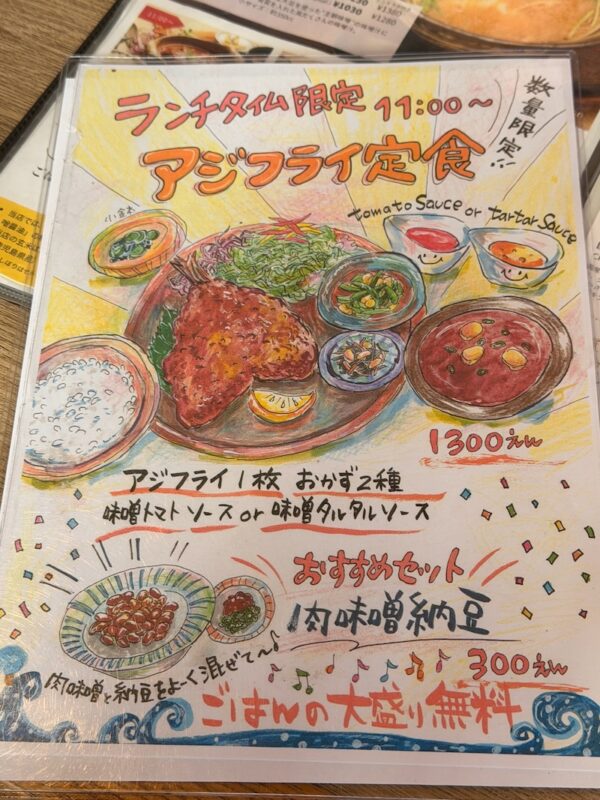 ¥1380
¥1030
¥1280
ランチタイム限定 11:00～
数量限定!!
アジフライ定食
小鉢
tomato Sauce or tartar Sauce
1300えん
アジフライ1枚 おかず2種
味噌トマトソース or 味噌タルタルソース
おすすめセット
肉味噌納豆
300えん
肉味噌と納豆をよ～く混ぜて～♪
ごはんの大盛り無料